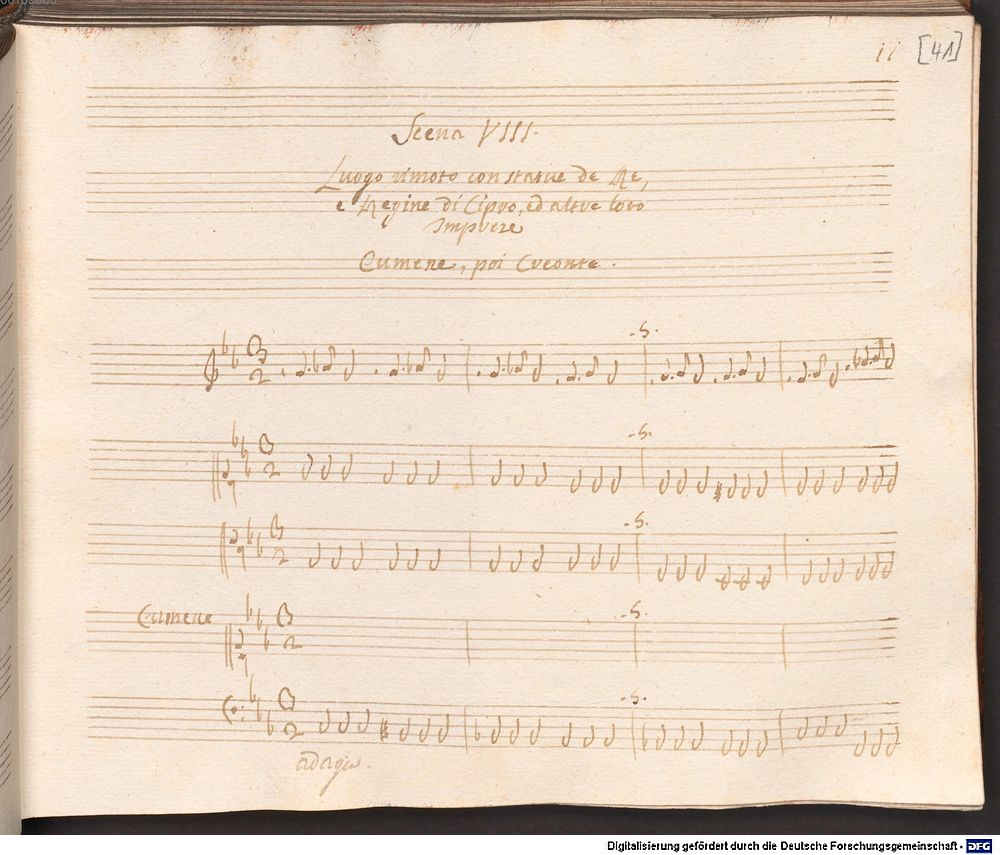 11 [41]
Scena VIII.
Luogo rimoto con statue de Re,
e Regine di Cipro, ed altre loro
Imprese
Eumene, poi Creonte.
-S.
-S.
-S.
Eumene
-S.
-S.
adagio.
Digitalisierung gefördert durch die Deutsche Forschungsgemeinschaft - DFG